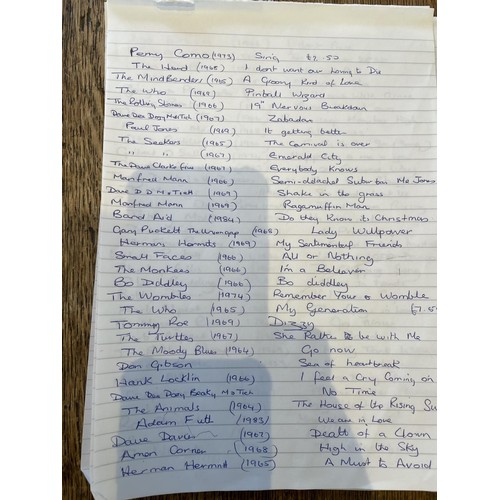 Perry Como (1973) Sing £7.50
The Herd (1968) I don't want our loving to Die
The MindBenders (1965) A Groovy Kind of Love
The Who (1969) Pinball Wizard
The Rolling Stones (1966) 19th Nervous Breakdown
Dave Dee Dozy M+Tich (1967) Zabadak
Paul Jones (1969) It getting better
The Seekers (1965) The Carnival is over
" " (1967) Emerald City
The Dave Clarke Five (1967) Everybody Knows
Manfred Mann (1966) Semi-detached Suburban Mr James
Dave D.D M+Tich (1969) Snake in the grass
Manfred Mann (1969) Ragamuffin Man
Band Aid (1984) Do they Know its Christmas
Gary Puckett The Union gap (1968) Lady Willpower
Hermans Hermits (1969) My Sentimental Friends
Small Faces (1966) All or Nothing
The Monkees (1966) I'm a Believer
Bo Diddley (1966) Bo diddley
The Wombles (1974) Remember Your a Womble
The Who (1965) My Generation £7.50
Tommy Roe (1969) Dizzy
The Turtles (1967) She Rather be with Me
The Moody Blues (1964) Go now
Don Gibson Sea of heartbreak
Hank Locklin (1966) I feel a Cry Coming on
Dave Dee Dozy Beaky M+Tich No Time
The Animals (1964) The House of the Rising Su
Adam Faith (1983) We are in Love
Dave Davies (1967) Death of a Clown
Amen Corner (1968) High in the Sky
Herman Hermit (1965) A Must to Avoid